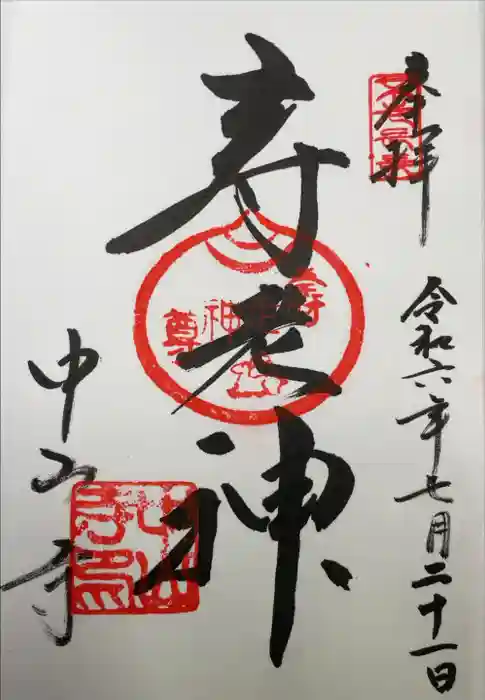 奉拝
令和六年七月二十一日
寿老神
寿老神尊
中山寺